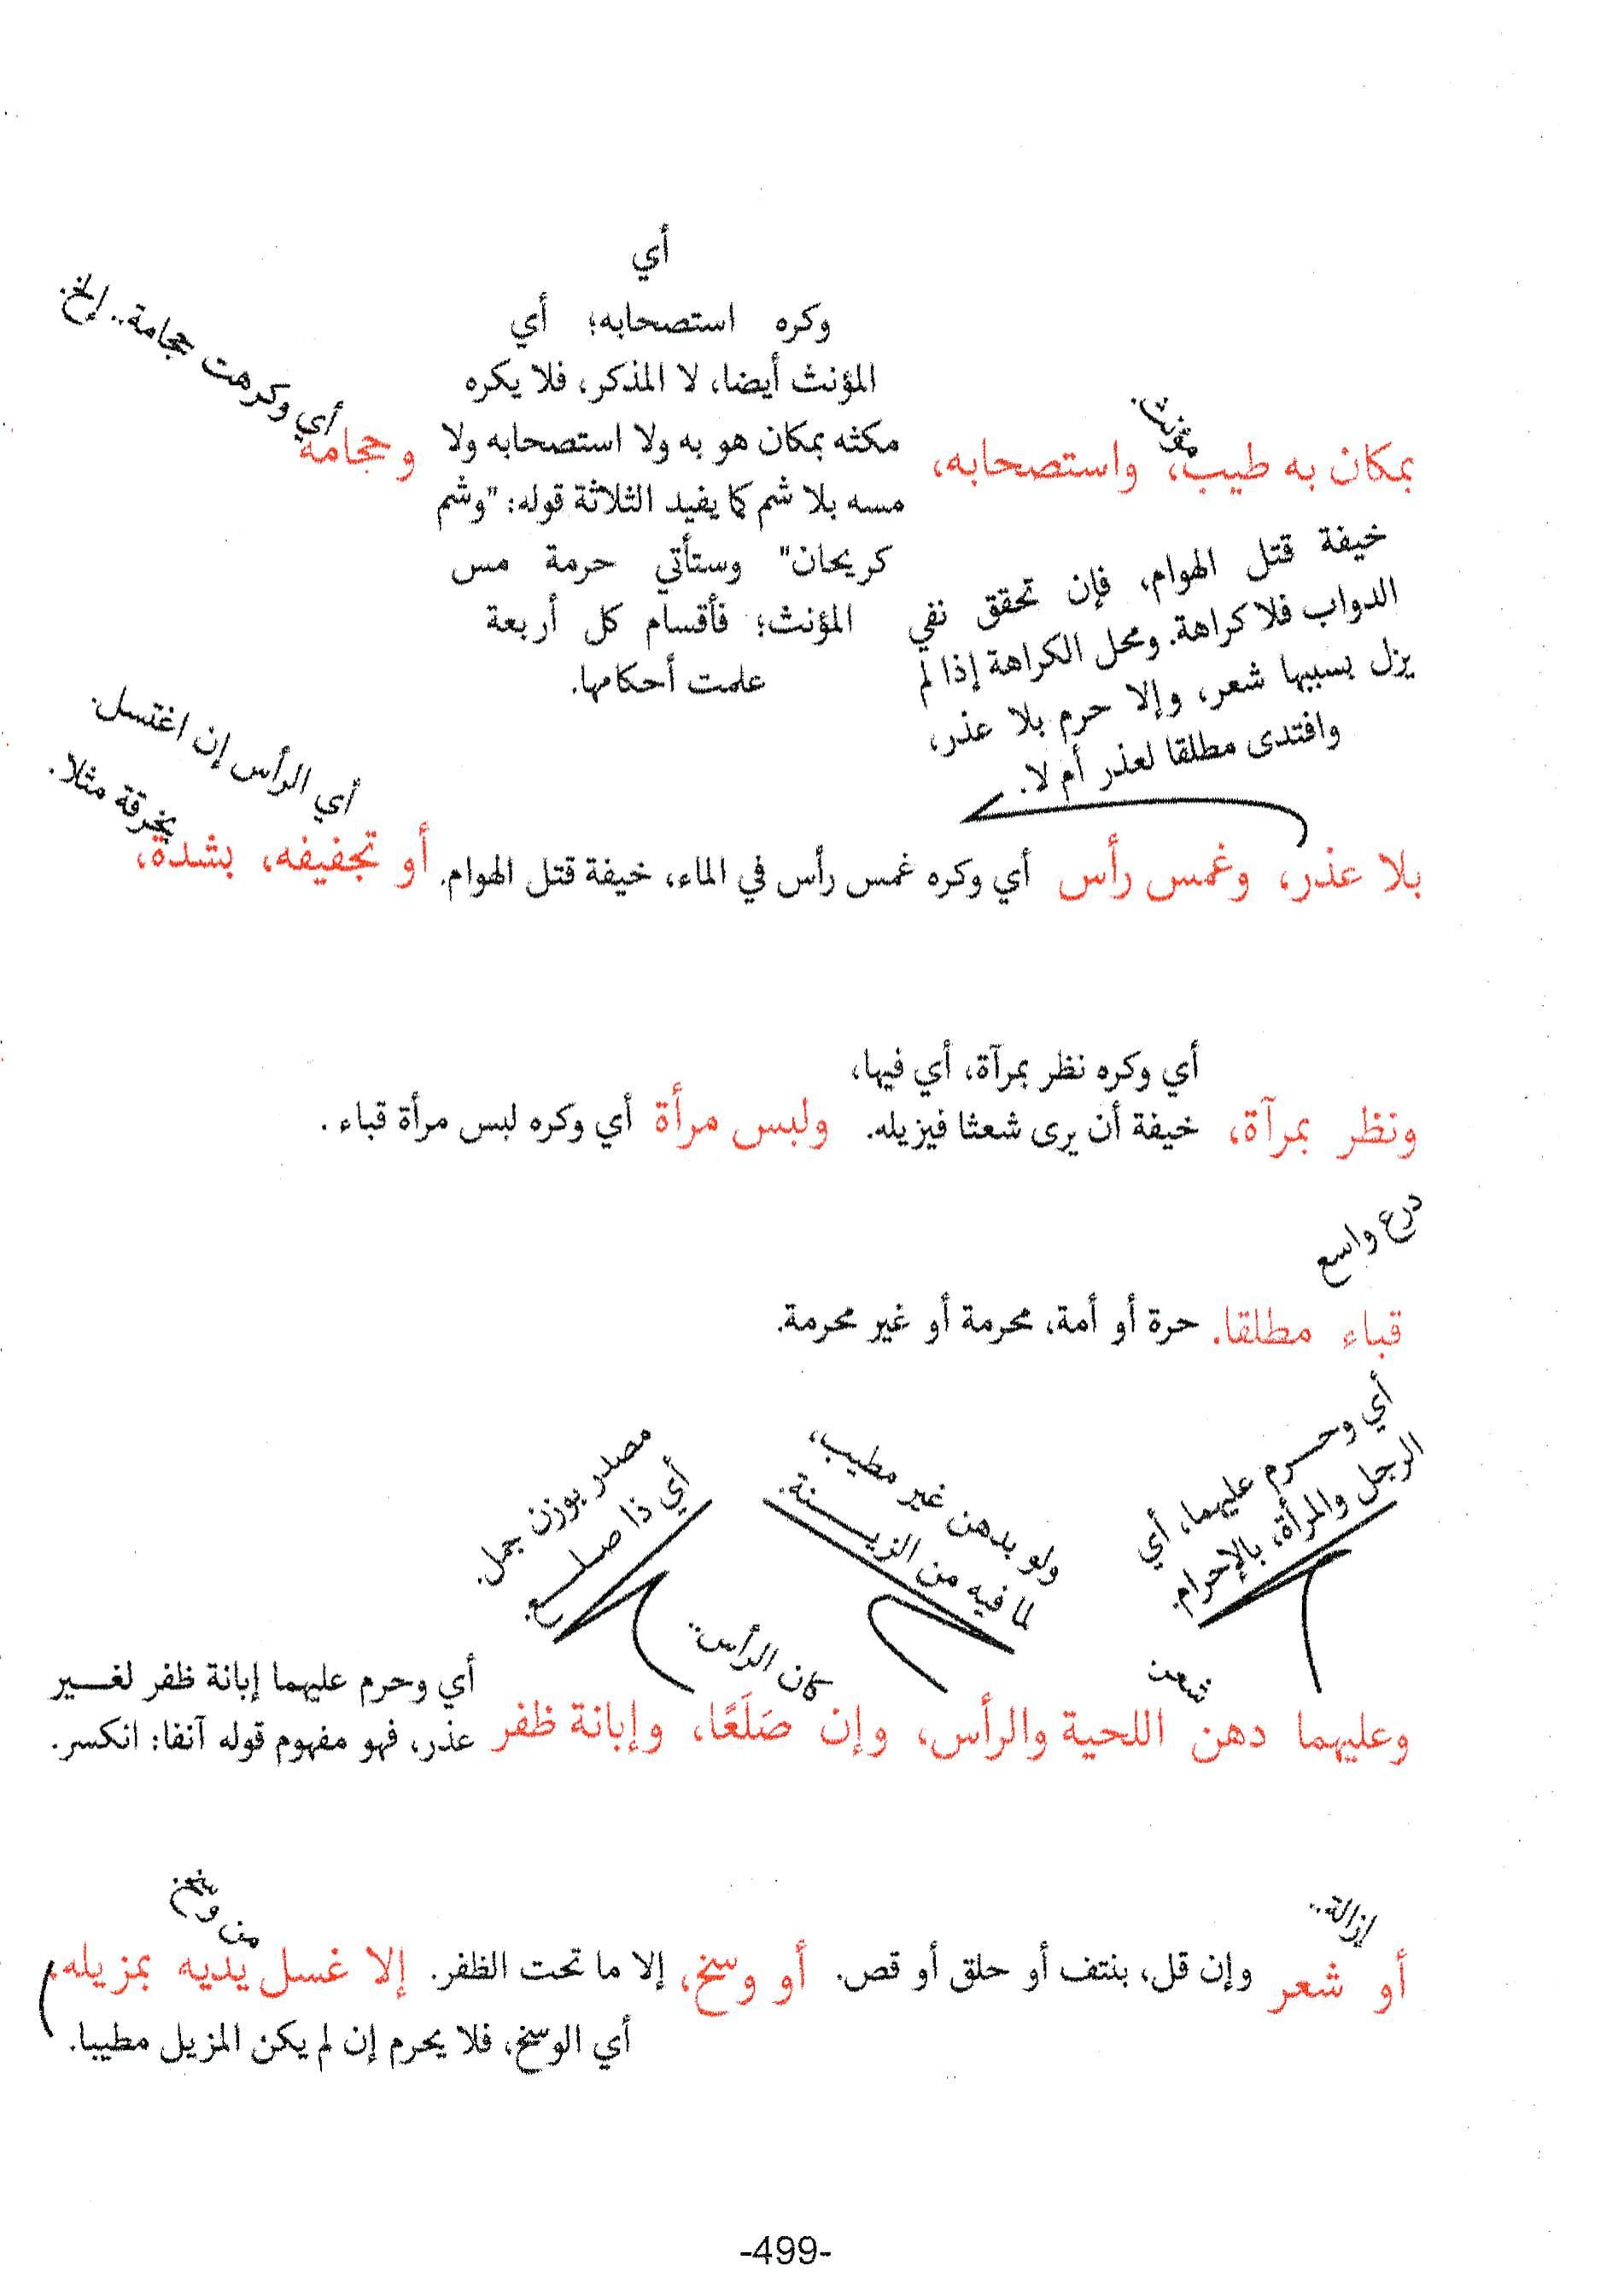 أي
وكره استصحابه؛ أي
المؤنث أيضا، لا المذكر، فلا يكره
مكثه بمكان هو به ولا استصحابه ولا
مسه بلا شم كما يفيد الثلاثة قوله: "وشم
كريحان" وستأتي حرمة مس
المؤنث؛ فأقسام كل أربعة
علمت أحكامها.
مؤنث.
أي وكرهت حجامة.. إلخ.
بمكان به طيب، واستصحابه، وحجامة
خيفة قتل الهوام، فإن تحقق نفي
الدواب فلا كراهة. ومحل الكراهة إذا لم
يزل بسببها شعر، وإلا حرم بلا عذر،
وافتدى مطلقا لعذر أم لا.
أي الرأس إن اغتسل.
بخرقة مثلا.
بلا عذر، وغمس رأس أي وكره غمس رأس في الماء، خيفة قتل الهوام. أو تجفيفه، بشدة،
أي وكره نظر بمرآة، أي فيها،
ونظر بمرآة، خيفة أن يرى شعثا فيزيله. ولبس مرأة أي وكره لبس مرأة قباء .
درع واسع
قباء مطلقا. حرة أو أمة، محرمة أو غير محرمة.
أي وحرم عليهما، أي
الرجل والمرأة، بالإحرام.
ولو بدهن غير مطيب،
لما فيه من الزينة.
مصدر بوزن جمل.
أي ذا صلع.
شعر
كان الرأس..
أي وحرم عليهما إبانة ظفر لغير
وعليهما دهن اللحية والرأس، وإن صَلَعًا، وإبانة ظفر عذر، فهو مفهوم قوله آنفا: انكسر.
إزالة..
من وسخ
أو شعر وإن قل، بنتف أو حلق أو قص. أو وسخ، إلا ما تحت الظفر. إلا غسل يديه بمزيله،
أي الوسخ، فلا يحرم إن لم يكن المزيل مطيبا.
-499-